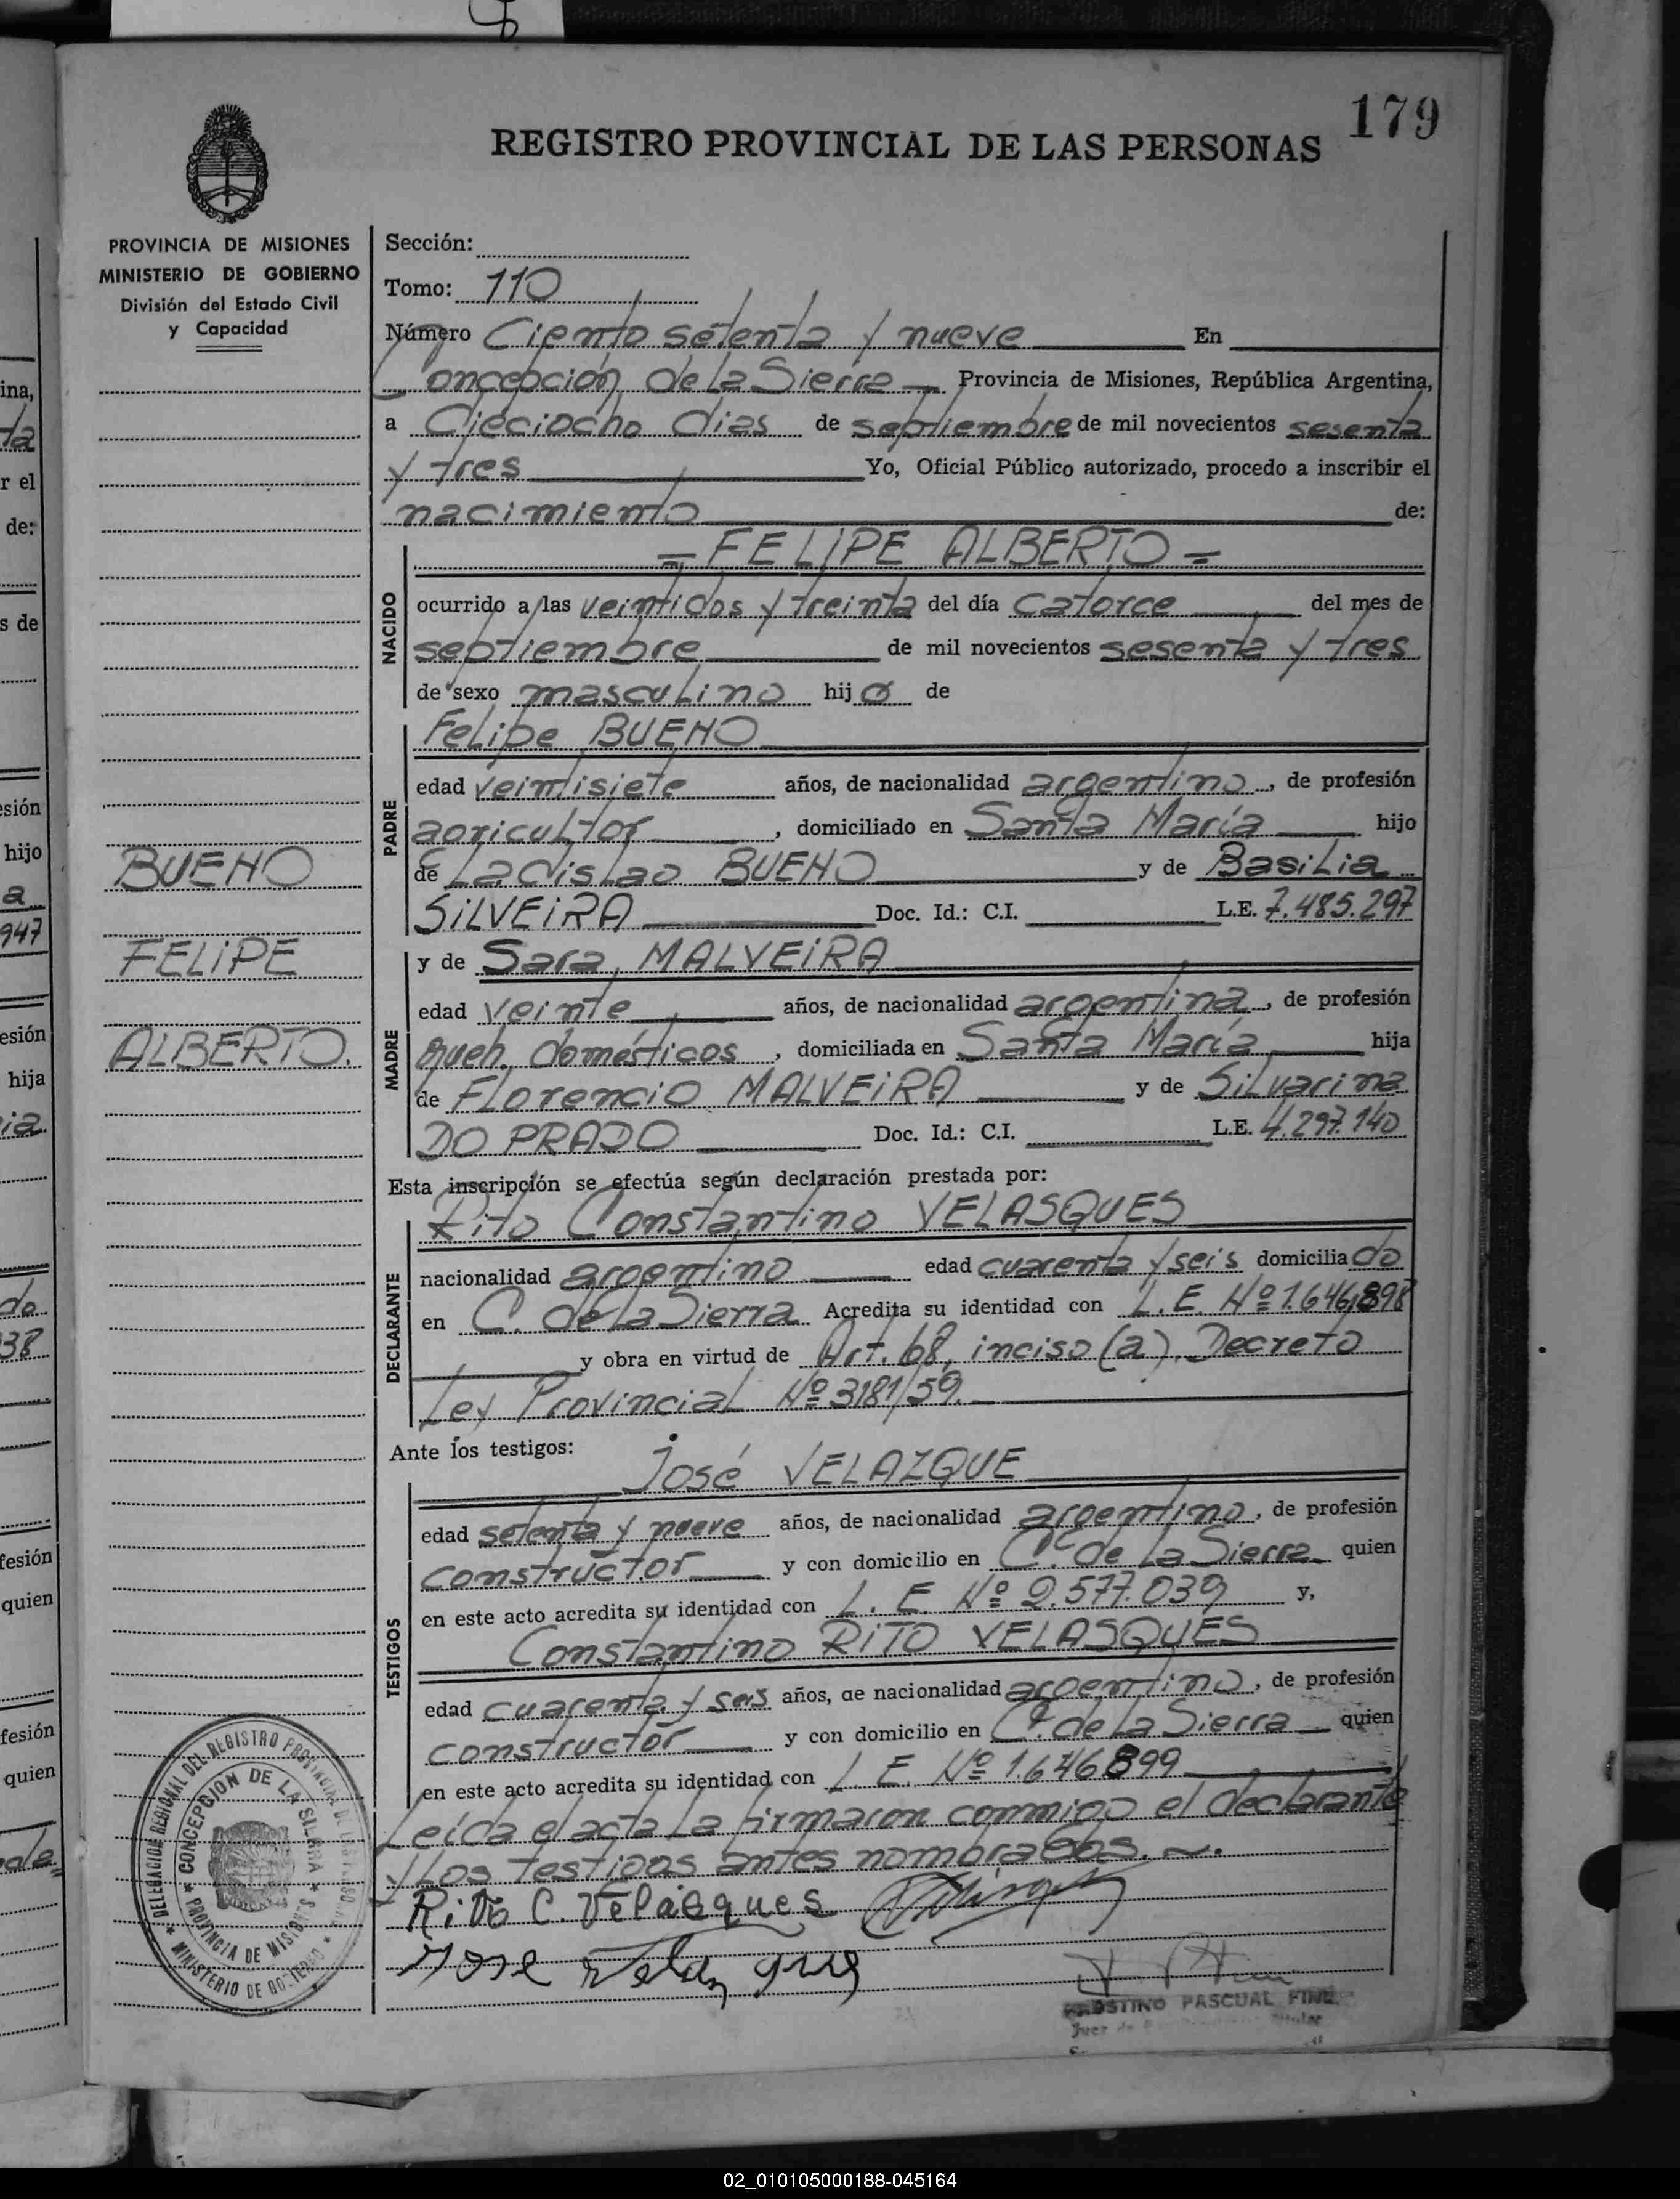 179
REGISTRO PROVINCIAL DE LAS PERSONAS
PROVINCIA DE MISIONES
MINISTERIO DE GOBIERNO
División del Estado Civil
y Capacidad
BUENO
FELIPE
ALBERTO.
Sección:
Tomo: 110
Número Ciento setenta y nueve En
Concepción de la Sierra Provincia de Misiones, República Argentina,
a Dieciocho dias de septiembre de mil novecientos sesenta
y tres Yo, Oficial Público autorizado, procedo a inscribir el
nacimiento de:
= FELIPE ALBERTO =
NACIDO
ocurrido a las veintidos y treinta del día catorce del mes de
septiembre de mil novecientos sesenta y tres
de sexo masculino hijo de
Felipe BUENO
PADRE
edad veintisiete años, de nacionalidad argentino, de profesión
agricultor, domiciliado en Santa María hijo
de Ladislao BUENO y de Basilia
SILVEIRA Doc. Id.: C.I. L.E. 7.485.297
y de Sara MALVEIRA
MADRE
edad veinte años, de nacionalidad argentina, de profesión
queh. domésticos, domiciliada en Santa María hija
de Florencio MALVEIRA y de Silvarina
DO PRADO Doc. Id.: C.I. L.E. 4.297.140
Esta inscripción se efectúa según declaración prestada por:
Rito Constantino VELASQUES
DECLARANTE
nacionalidad argentino edad cuarenta y seis domiciliado
en C. de la Sierra Acredita su identidad con L.E. Nº 1.646.898
y obra en virtud de Art. 68, inciso (a). Decreto
Ley Provincial Nº 3181/59.
Ante los testigos:
José VELAZQUE
TESTIGOS
edad setenta y nueve años, de nacionalidad argentino, de profesión
constructor y con domicilio en C. de la Sierra quien
en este acto acredita su identidad con L. E. Nº 2.577.039 y,
Constantino RITO VELASQUES
edad cuarenta y seis años, de nacionalidad argentino, de profesión
constructor y con domicilio en C. de la Sierra quien
en este acto acredita su identidad con L. E. Nº 1.646.899
Leida el acta la firmaron conmigo el declarante
y los testigos antes nombrados.
Rito C. Velásques
Jose Velazque
PASCUAL
DELEGACION REGIONAL DEL REGISTRO PROVINCIAL DE LAS PERSONAS
CONCEPCION DE LA SIERRA
PROVINCIA DE MISIONES
MINISTERIO DE GOBIERNO
02_010105000188-045164